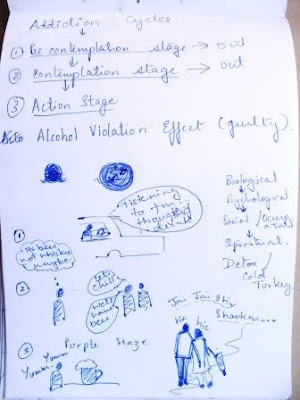 Addiction Cycles
① Pre contemplation stage → out
② Contemplation stage → out
③ Action Stage
Alcohol Violation Effect (guilty).
Biological
Psychological
Social /
Spiritual.
Detox /
Cold
Turkey
①
listening
to the
thoughts
Its beer
not whiskey
maybe
②
let's
chill
We'll
have
beer
③ Purple Haze
Yumm.. Yumm
Jai Jai Shiv
Shankar...
hic hic